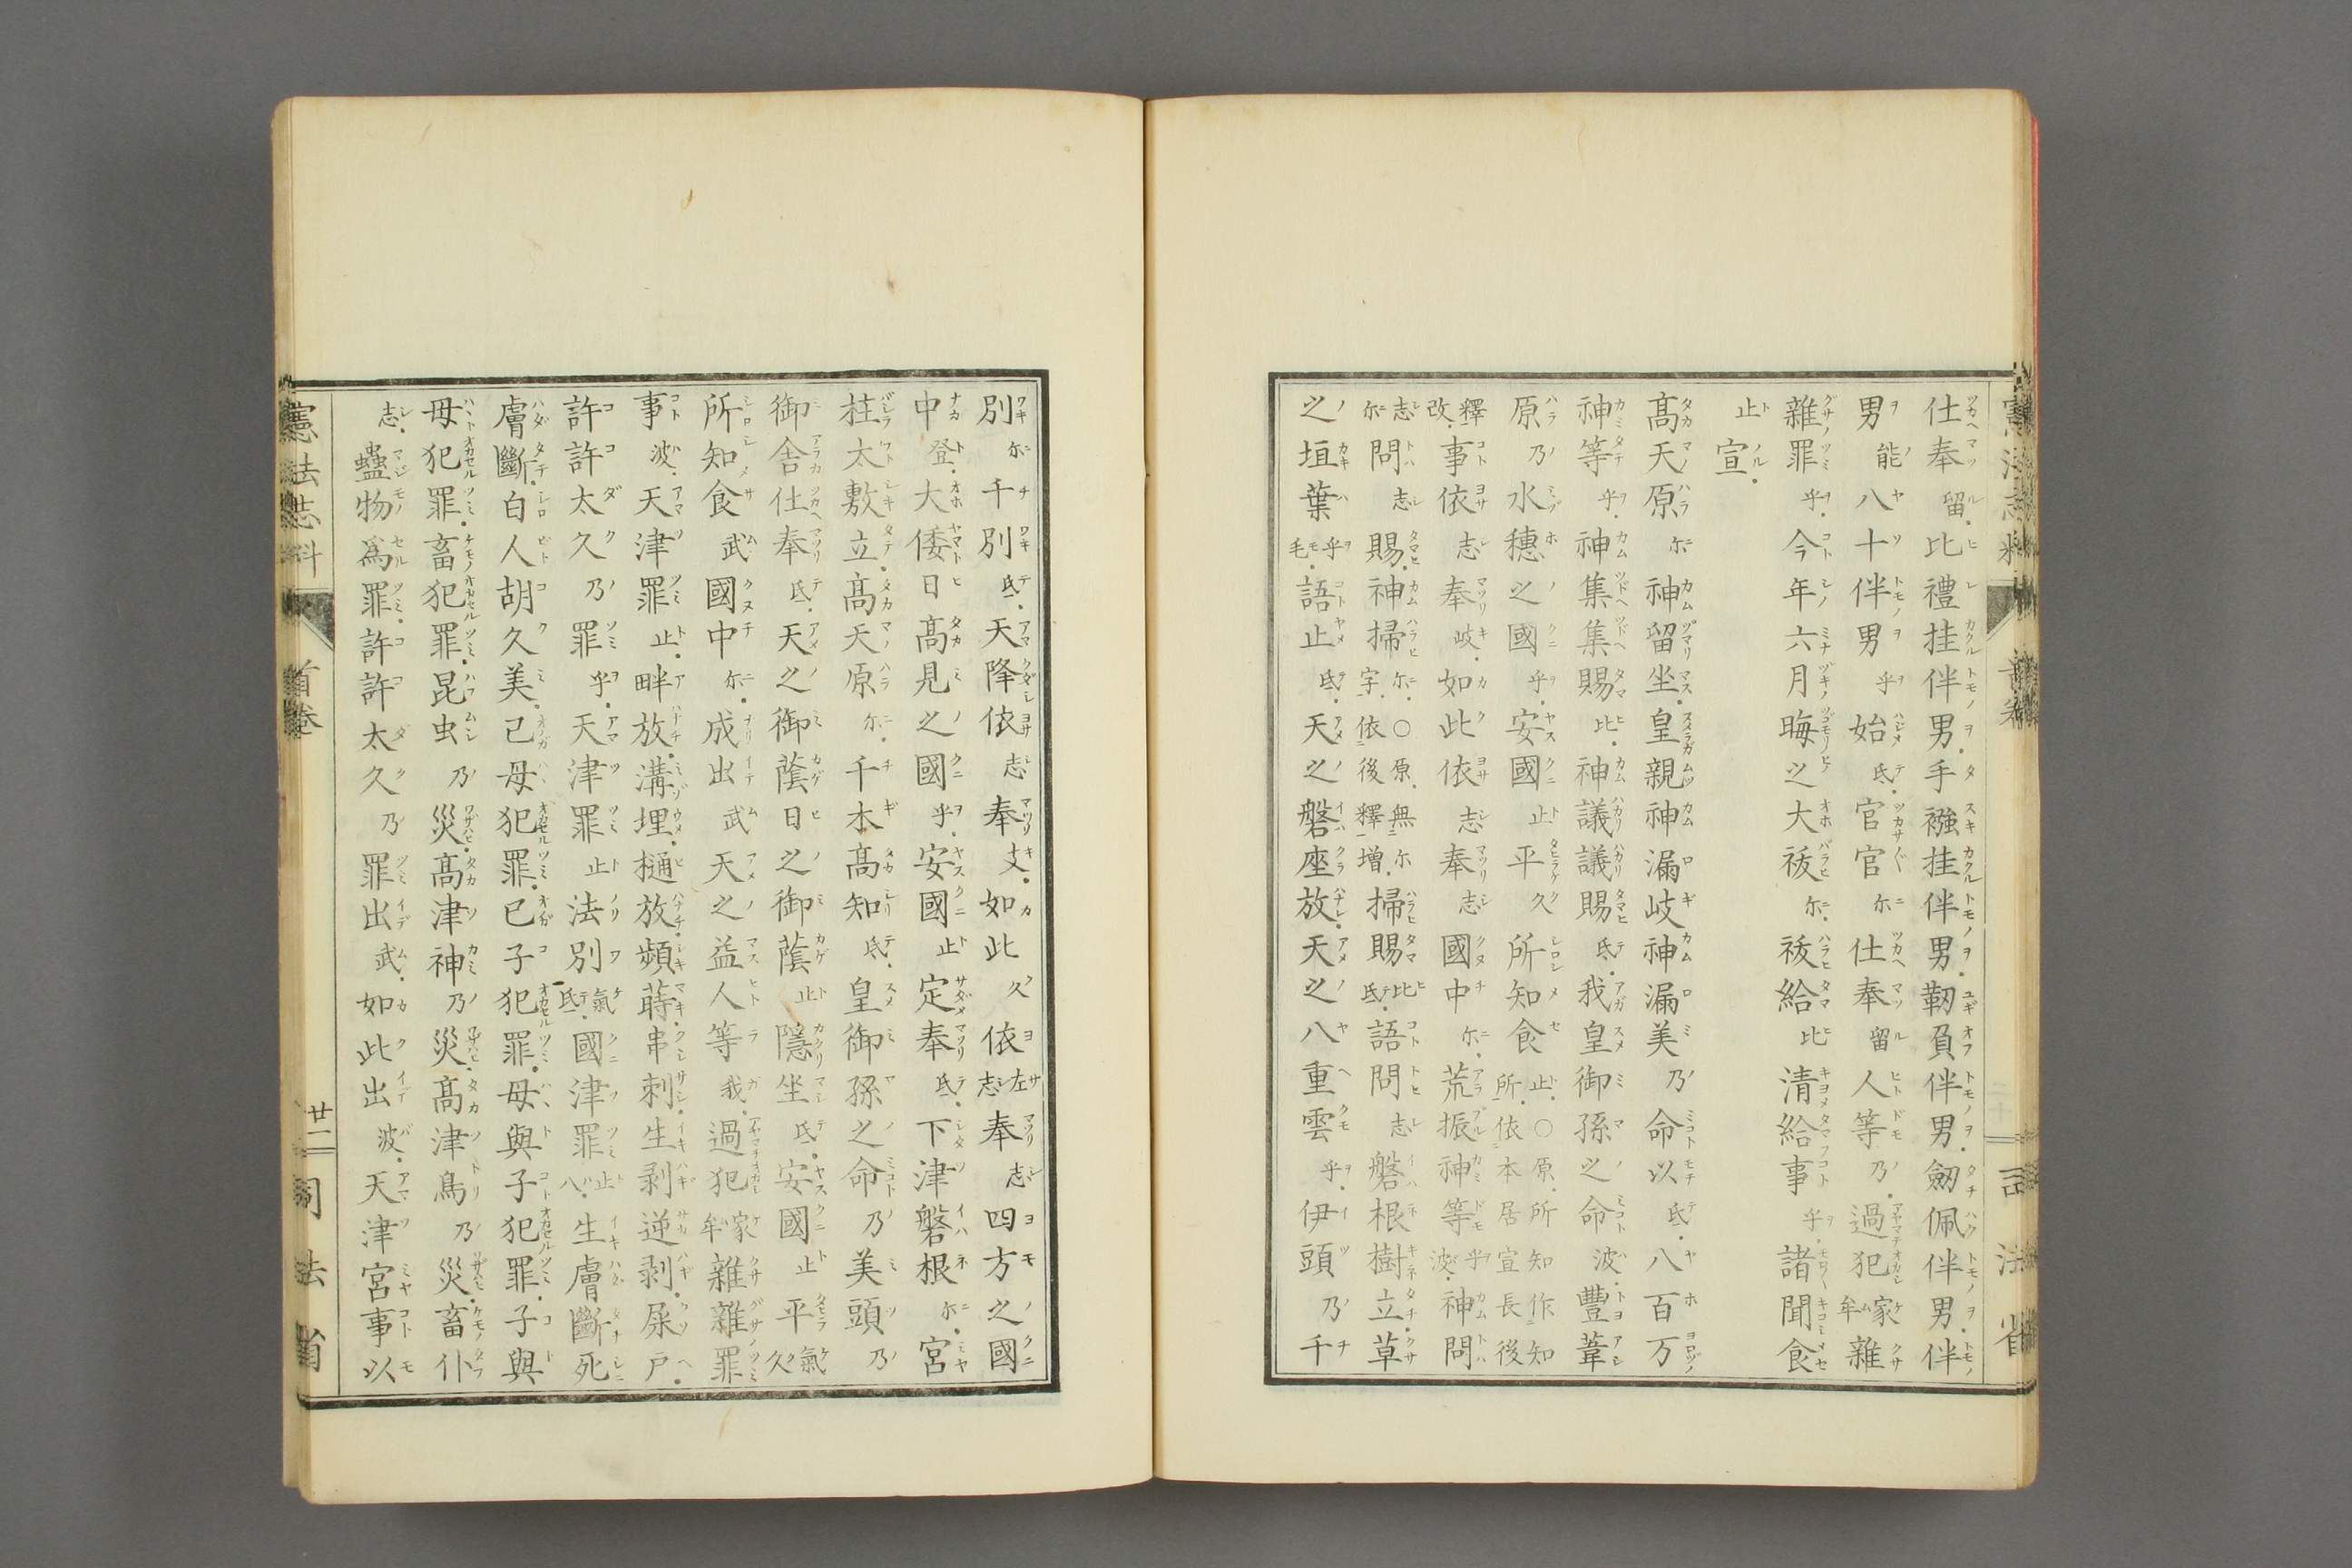 仕奉留比禮挂伴男手襁挂伴男靭負伴男劒佩伴男伴
男能八十伴男乎始氐官官尓仕奉留人等乃過犯家牟雜
雜罪乎今年六月晦之大祓尓祓給比清給事乎諸聞食
止宣
髙天原尓神留坐皇親神漏岐神漏美乃命以氐八百万
神等乎神集集賜比神議議賜氐我皇御孫之命波豐葦
原乃水穗之國乎安國止平久所知食止○原所知作知所依本居宣長後
釋改事依志奉岐如此依志奉志國中尓荒振神等乎波神問
志尓問志賜神掃尓○原無尓字依後釋增掃賜比氐語問志磐根樹立草
之垣葉乎毛語止氐天之磐座放天之八重雲乎伊頭乃千
別尓千別氐天降依志奉支如此依左志奉志四方之國
中登大倭日髙見之國乎安國止定奉氐下津磐根尓宮
柱太敷立髙天原尓千木髙知氐皇御孫之命乃美頭乃
御舎仕奉氐天之御蔭日之御蔭止隱坐氐安國止平氣久
所知食武國中尓成出武天之益人等我過犯家牟雜雜罪
事波天津罪止畔放溝埋樋放頻蒔串刺生剥逆剥屎戸
許許太久乃罪乎天津罪止法別氣氐國津罪止八生膚斷死
膚斷白人胡久美己母犯罪己子犯罪母與子犯罪子與
母犯罪畜犯罪昆虫乃災髙津神乃災髙津鳥乃災畜仆
志蠱物爲罪許許太久乃罪出武如此出波天津宮事以
憲法志料
首卷
廿二
司法省